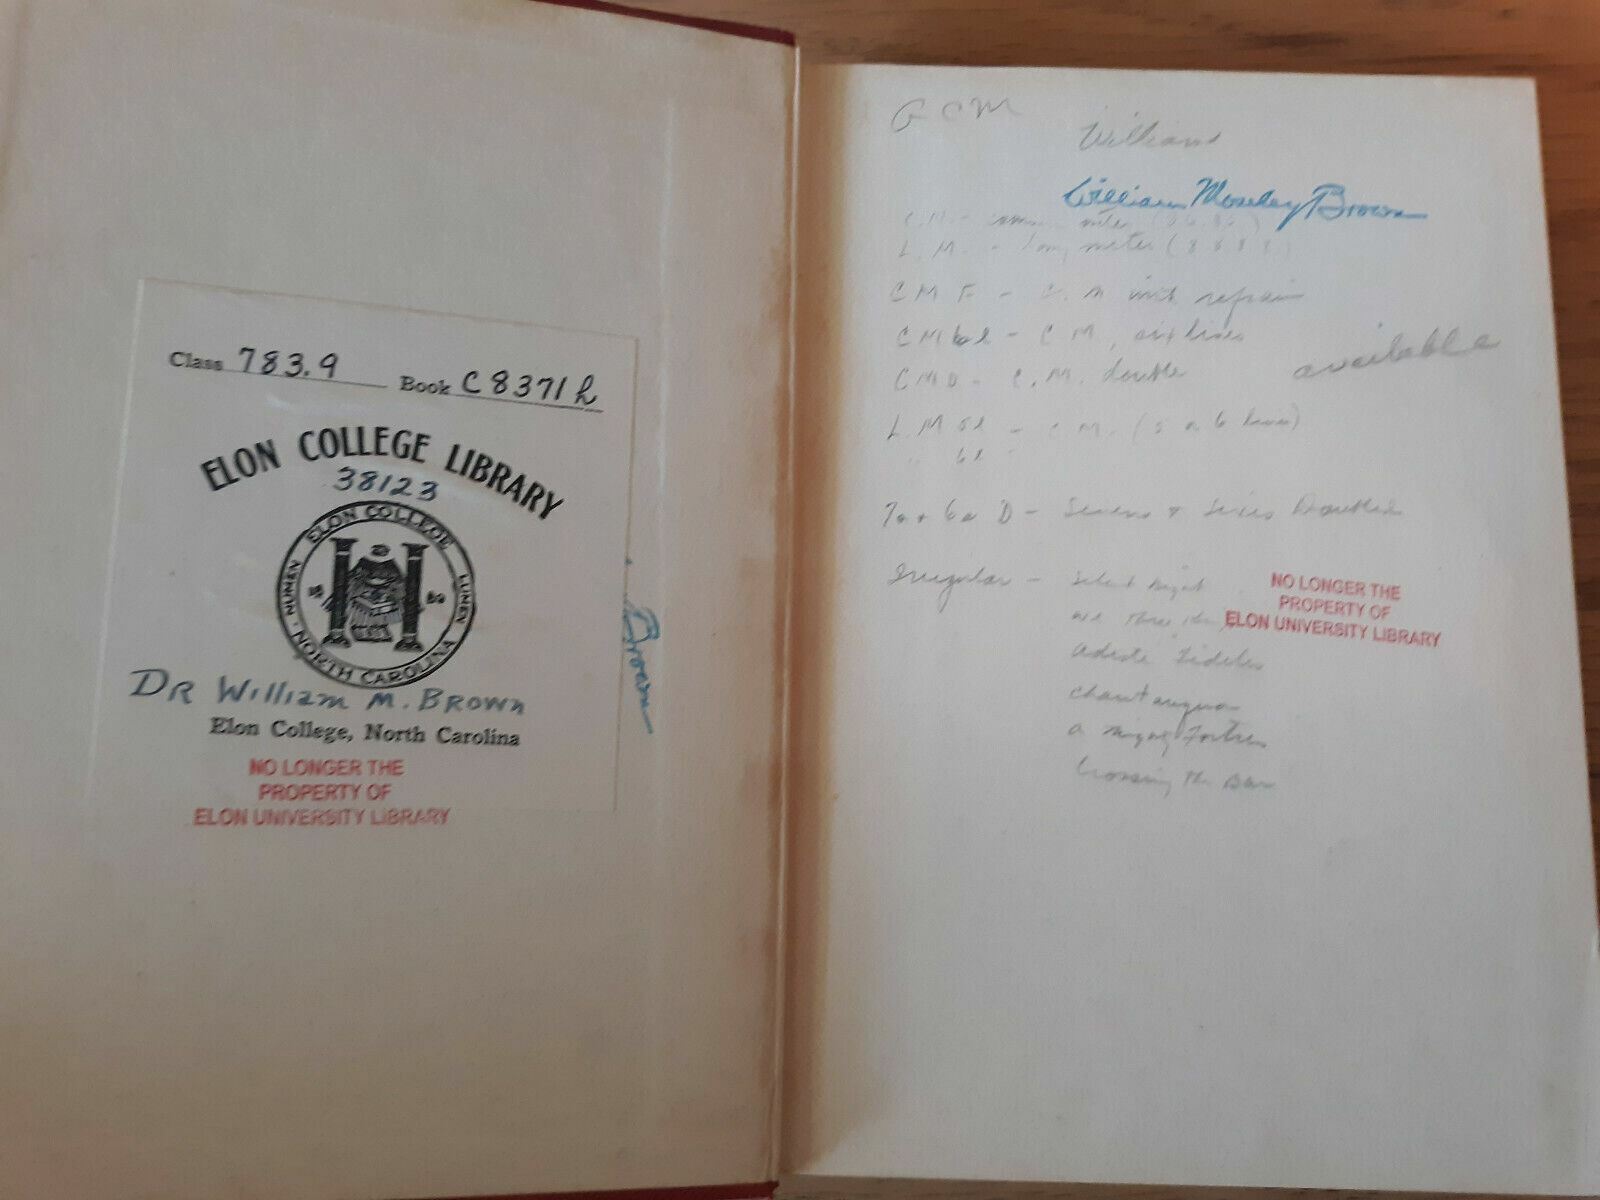 Class 783.9 Book C8371h
ELON COLLEGE LIBRARY
38123
ELON COLLEGE
NUMEN LUMEN
1889
NORTH CAROLINA
DR WILLIAM M. BROWN
Elon College, North Carolina
NO LONGER THE
PROPERTY OF
ELON UNIVERSITY LIBRARY
Brown
G C M
Williams
William Moseley Brown
C.M. - common meter (8 6 8 6)
L. M. - long meter (8 8 8 8)
C M F - C. M with refrain
C M 6l - C M, six lines
available
C M D - C. M. double
L. M 5l - C M. (5 or 6 lines)
" 6l "
7s + 6s D - Sevens + Sixes Doubled
Irregular - Silent Night
We Three
Adeste Fideles
Chautauqua
A Mighty Fortress
Crossing the Bar
NO LONGER THE
PROPERTY OF
ELON UNIVERSITY LIBRARY